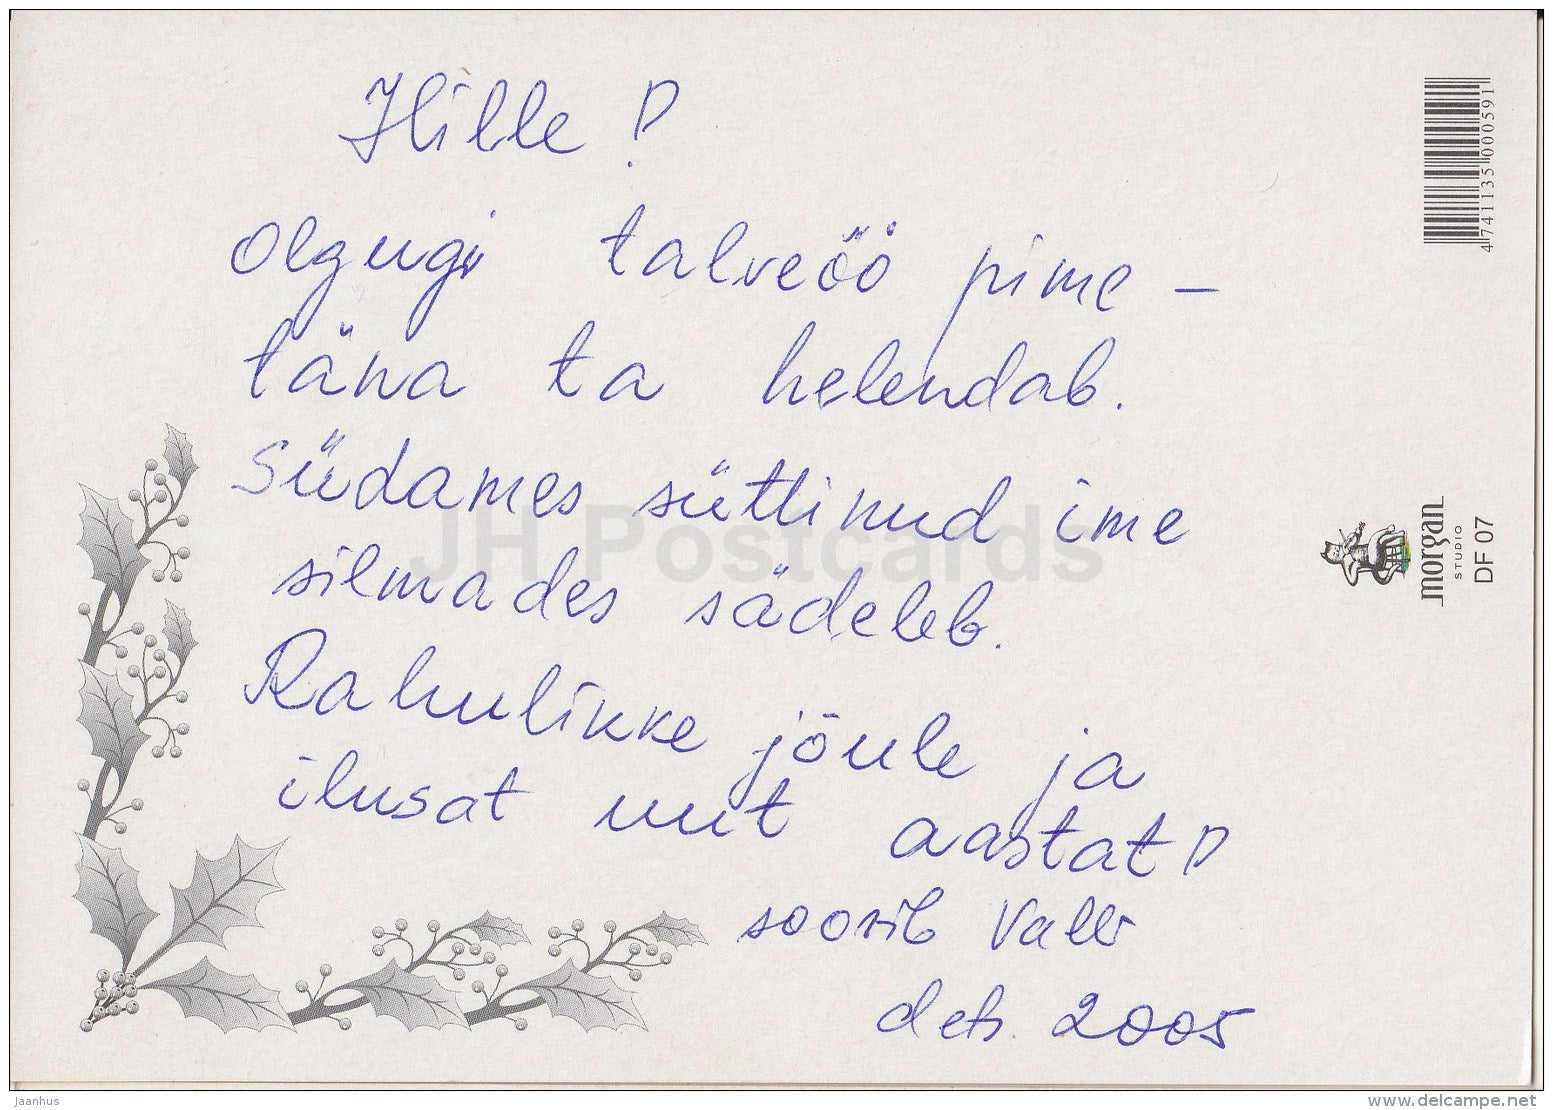 Hille!
Olgugi talveöö pime –
täna ta helendab.
Südames süttinud ime
silmades sädeleb.
Rahulikke jõule ja
ilusat uut aastat!
soovib Valli
dets. 2005
4 741135 000591
morgan
STUDIO
DF 07
JH Postcards
Jaanhus
www.delcampe.net